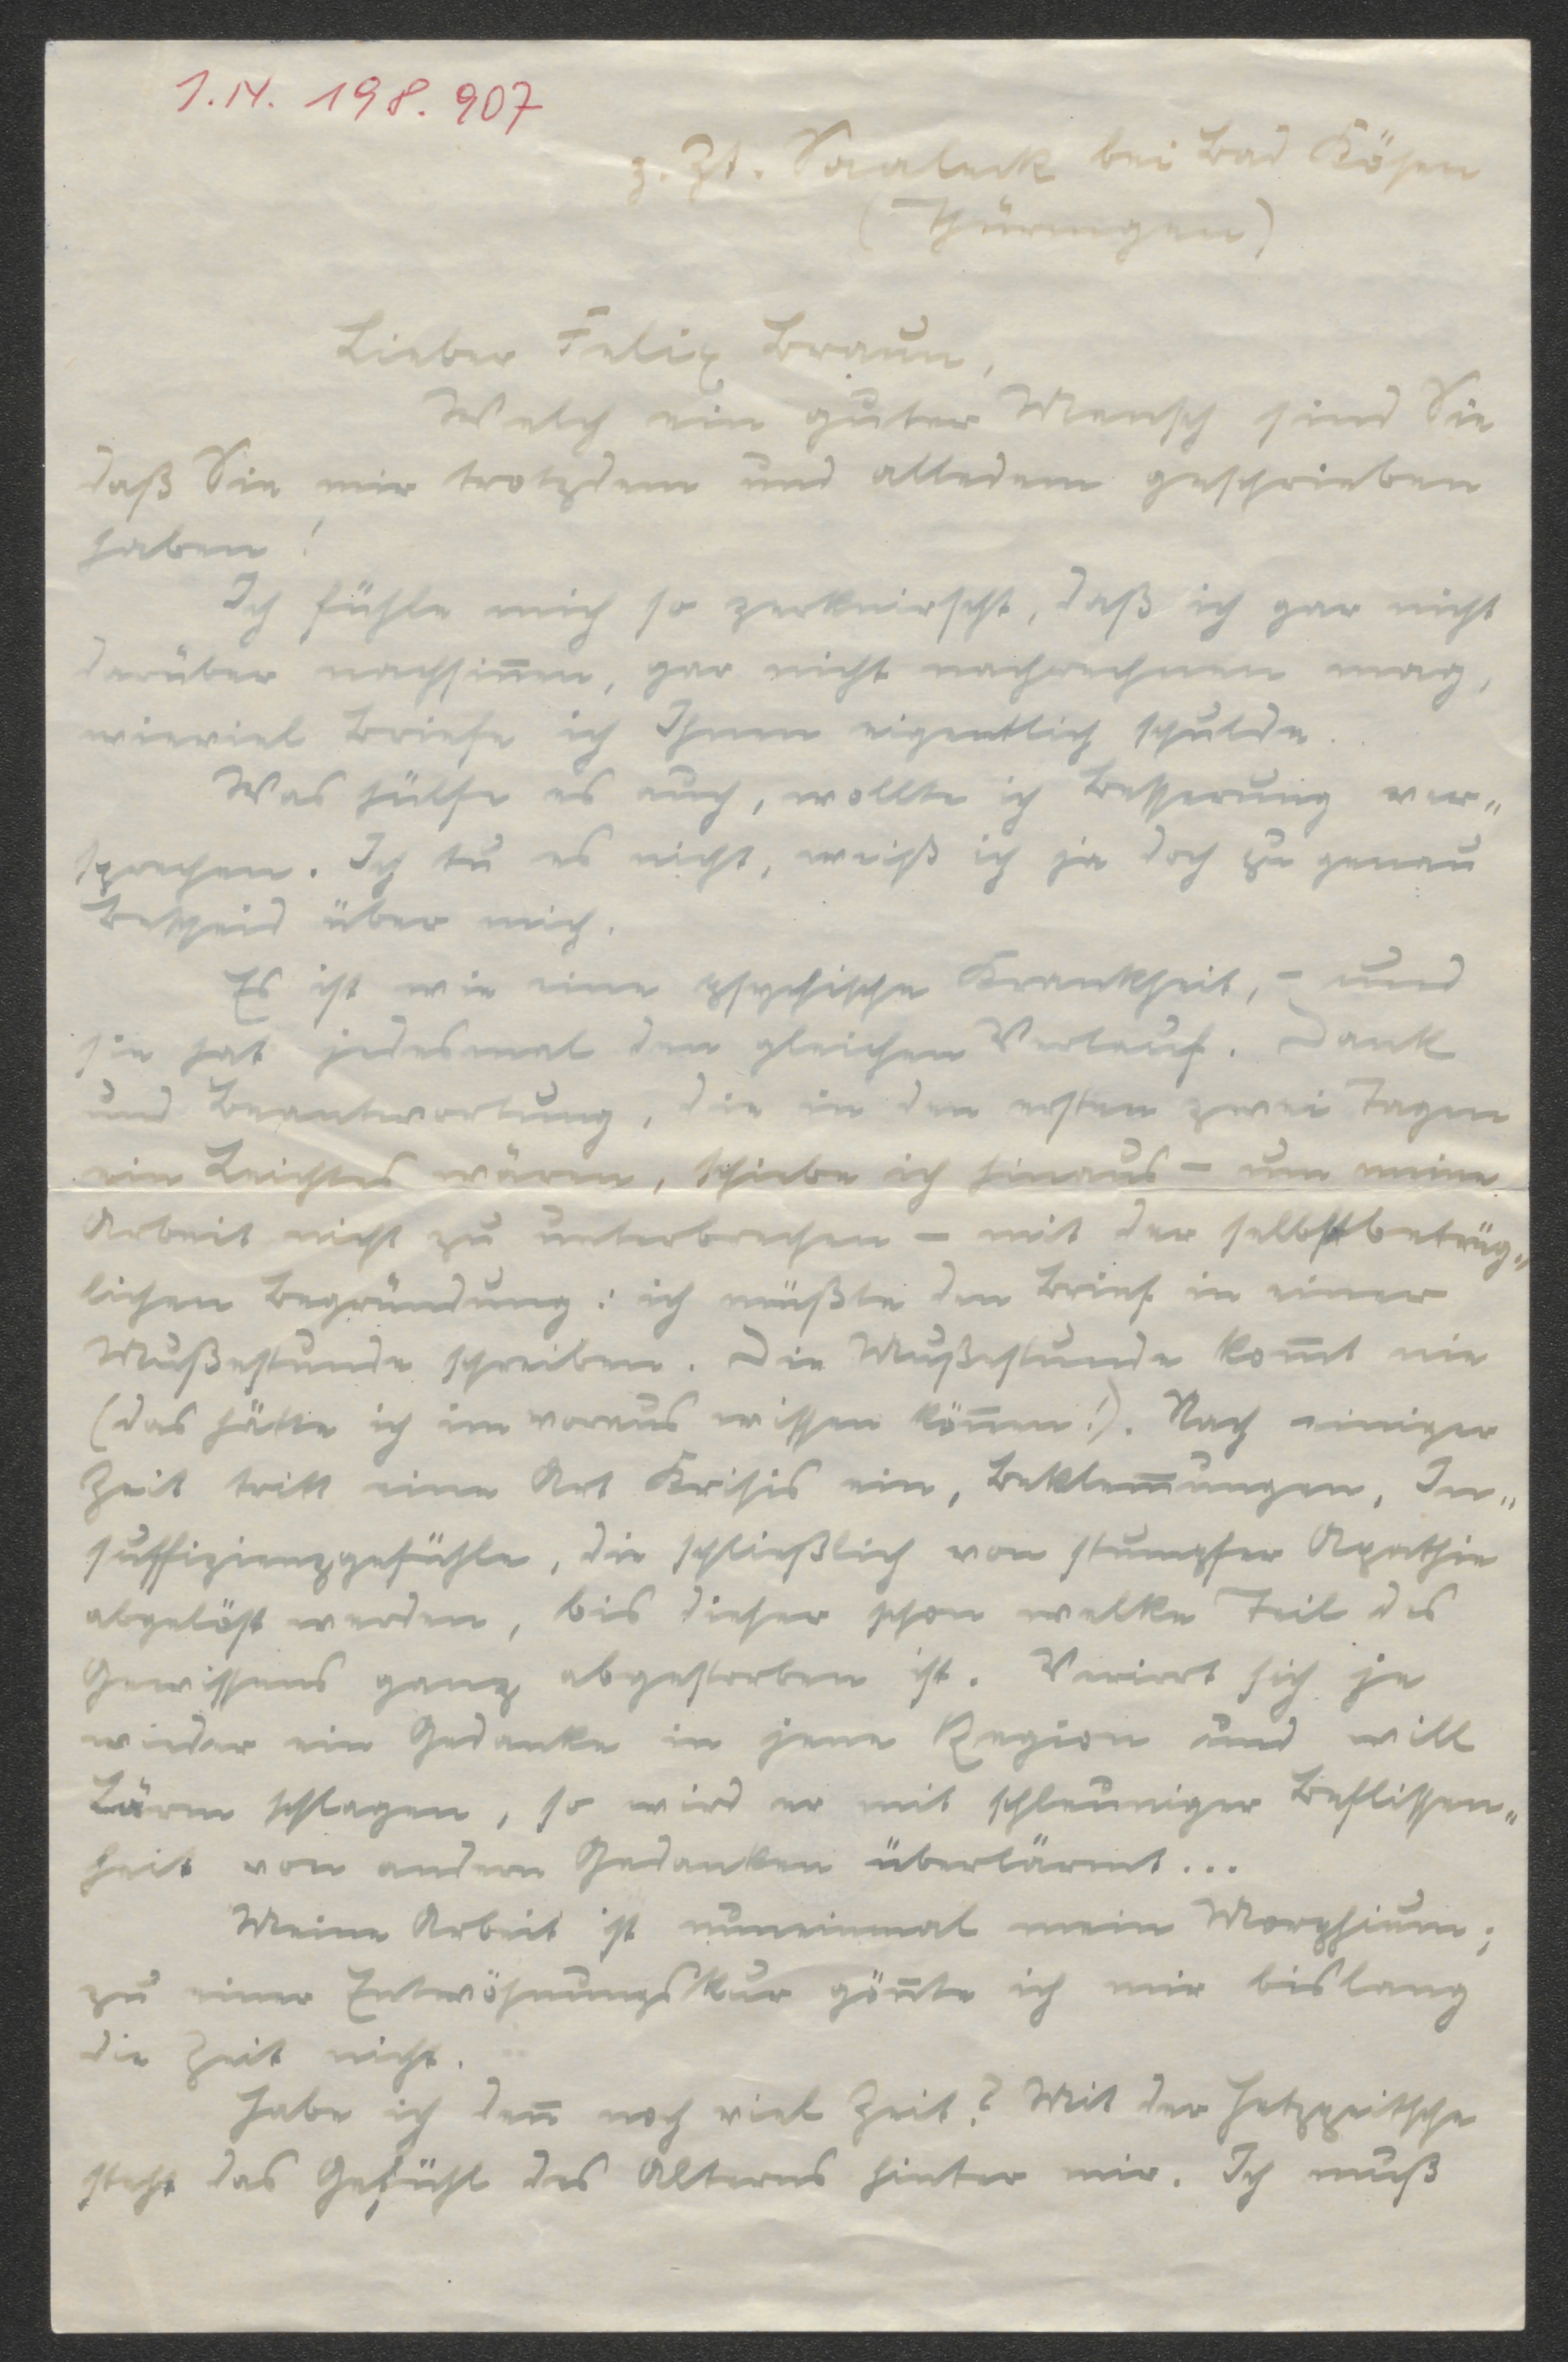 I.N. 198.907
z. Zt. Saaleck bei Bad Kösen
(Thüringen)
Lieber Felix Braun,
Welch ein guter Mensch sind Sie
daß Sie mir trotzdem und alledem geschrieben
haben!
Ich fühle mich so zerknirscht, daß ich gar nicht
darüber nachsin̅en, gar nicht nachrechnen mag,
wieviel Briefe ich Ihnen eigentlich schulde.
Was hülfe es auch, wollte ich Besserung ver=
sprechen. Ich tu es nicht, weiß ich ja doch zu genau
Bescheid über mich.
Es ist wie eine psychische Krankheit, – und
sie hat jedesmal den gleichen Verlauf. Dank
und Beantwortung, die in den ersten zwei Tagen
ein Leichtes wären, schiebe ich hinaus – um meine
Arbeit nicht zu unterbrechen – mit der selbstbetrüg=
lichen Begründung: ich müßte den Brief in einer
Mußestunde schreiben. Die Mußestunde kom̅t nie
(das hätte ich im voraus wissen kön̅en!). Nach einiger
Zeit tritt eine Art Krisis ein, Beklem̅ungen, In=
suffizienzgefühle, die schließlich von stumpfer Apathie
abgelöst werden, bis dieser schon welke Teil des
Gewissens ganz abgestorben ist. Verirrt sich je
wieder ein Gedanke in jene Region und will
Lärm schlagen, so wird er mit schleuniger Beflissen=
heit von andern Gedanken überlärmt...
Meine Arbeit ist nuneinmal mein Morphium;
zu einer Entwöhnungskur gön̅te ich mir bislang
die Zeit nicht.
Habe ich den̅ noch viel Zeit? Mit der Hetzpeitsche
steht das Gefühl des Alterns hinter mir. Ich muß